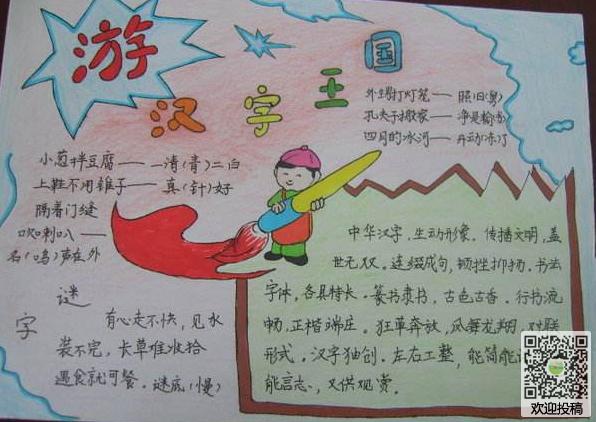 游
汉字王国
外甥打灯笼——照旧(舅)
孔夫子搬家——净是输(书)
四月的冰河——开动(冻)了
小葱拌豆腐——一清(青)二白
上鞋不用锥子——真(针)好
隔着门缝
吹喇叭——
名(鸣)声在外
字谜
有心走不快，见水
装不完，长草难收拾
遇食就可餐。谜底(慢)
中华汉字，生动形象。传播文明，盖
世无双。连缀成句，顿挫抑扬。书法
字体，各具特长。篆书隶书，古色古香。行书流
畅，正楷端庄。狂草奔放，凤舞龙翔，对联
形式。汉字独创。左右工整，能简能
能言志，又供观赏。
欢迎投稿